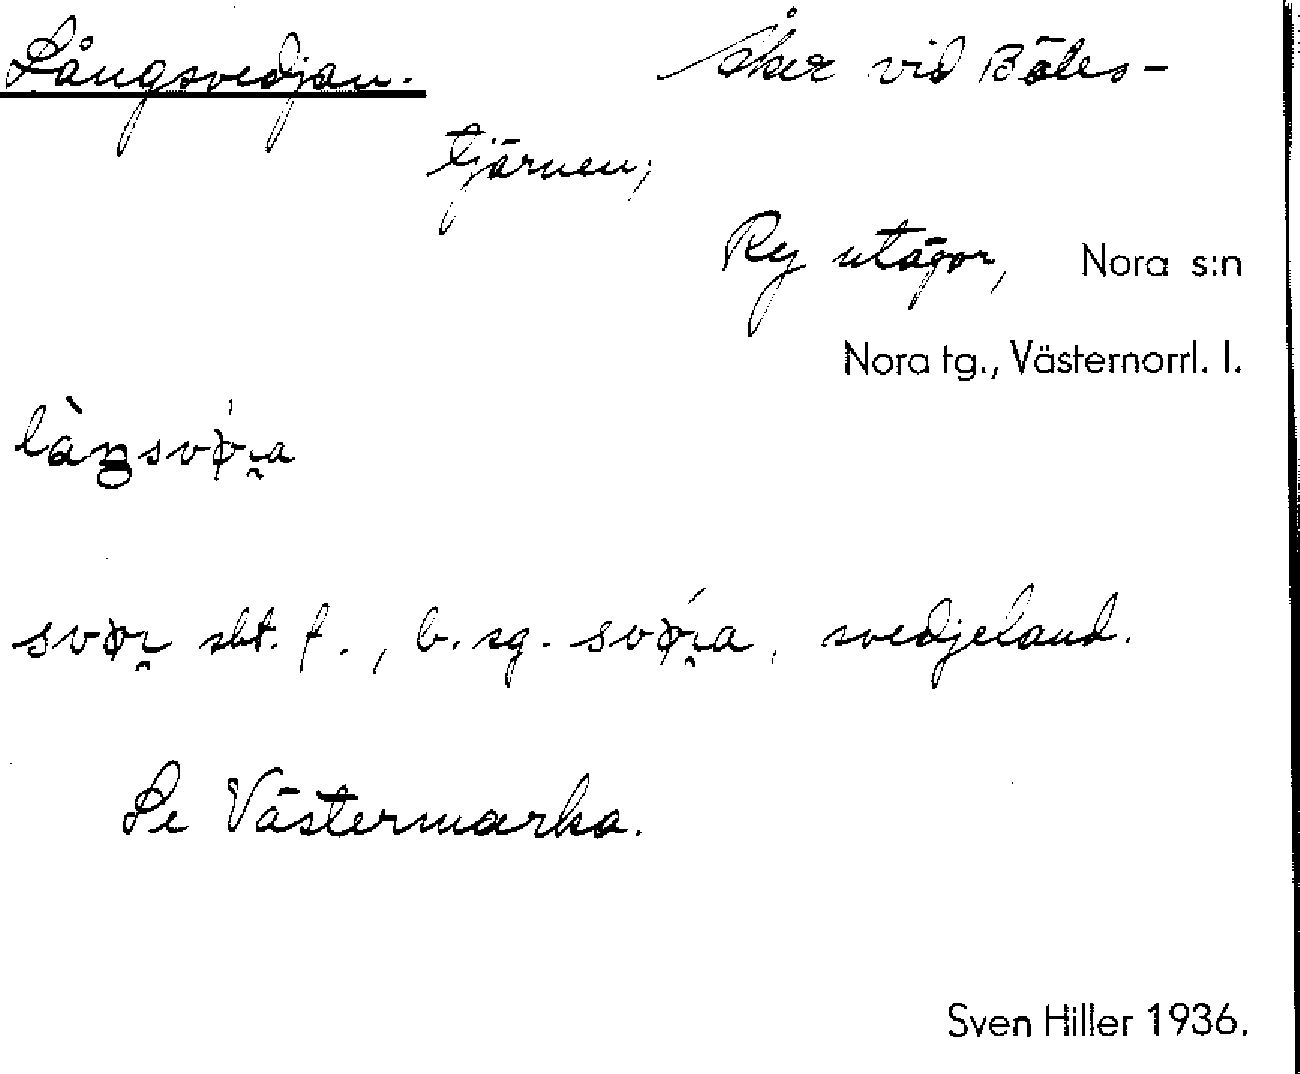 Långsvedjan. Åker vid Böles-
tjärnen,
Ry utägor, Nora s:n
Nora tg., Västernorrl. l.
svør sbt. f., b. sg. svø̀ra, svedjeland.
Se Västermarka.
Sven Hiller 1936.